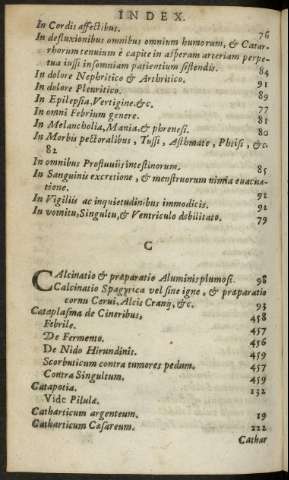 INDEX.
In Cordis affectibus. 76
In defluxionibus omnibus omnium humorum, & Catar-
rhorum tenuium è capite in asperam arteriam perpe-
tua tussi insomniam patientium sistendis. 84
In dolore Nephritico & Arthritico. 91
In dolore Pleuritico. 89
In Epilepsia, Vertigine. &c. 77
In omni Febrium genere. 81
In Melancholia, Mania, & phrenesi. 80
In Morbis pectoralibus, Tussi, Asthmate, Phtisi, &c.
82
In omnibus Profluviis intestinorum. 85
In Sanguinis excretione, & menstruorum nimia evacua-
tione. 91
In Vigiliis ac inquietudinibus immodicis. 91
In vomitu, Singultu, & Ventriculo debilitato. 79
C
CAlcinatio & præparatio Aluminis plumosi. 98
Calcinatio Spagyrica vel sine igne, & præparatio
cornu Cervi, Alcis Cranij, &c. 93
Cataplasma de Cineribus, 458
Febrile. 457
De Fermento. 456
De Nido Hirundinis. 459
Scorbuticum contra tumores pedum. 457
Contra Singultum. 459
Catapotia. 132
Vide Pilulæ.
Catharticum argenteum. 19
Catharticum Casareum. 222
Cathar